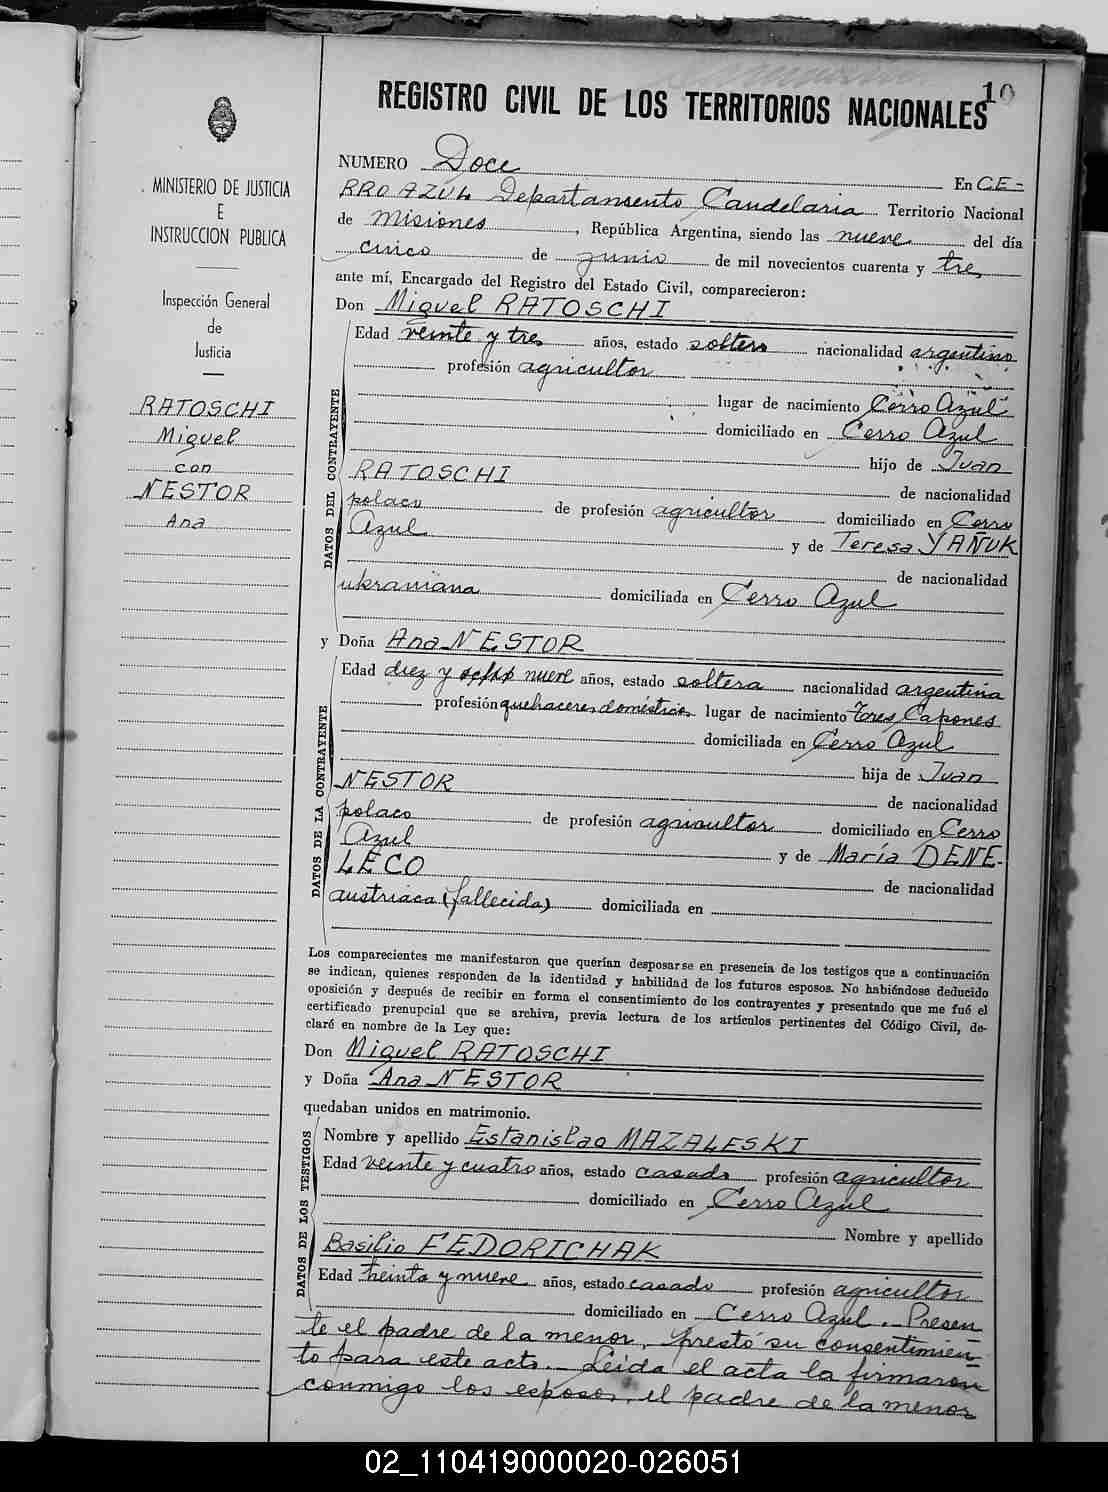 10
REGISTRO CIVIL DE LOS TERRITORIOS NACIONALES
MINISTERIO DE JUSTICIA
E
INSTRUCCION PUBLICA
Inspección General
de
Justicia
RATOSCHI
Miguel
con
NESTOR
Ana
NUMERO Doce En CE-
RRO AZUL Departamento Candelaria Territorio Nacional
de Misiones, República Argentina, siendo las nueve del día
cinco de junio de mil novecientos cuarenta y tres
ante mí, Encargado del Registro del Estado Civil, comparecieron:
Don Miguel RATOSCHI
DATOS DEL CONTRAYENTE
Edad veinte y tres años, estado soltero nacionalidad argentino
profesión agricultor
lugar de nacimiento Cerro Azul
domiciliado en Cerro Azul
hijo de Juan
RATOSCHI de nacionalidad
polaco de profesión agricultor domiciliado en Cerro
Azul y de Teresa YAÑUK
de nacionalidad
ukraniana domiciliada en Cerro Azul
y Doña Ana NESTOR
DATOS DE LA CONTRAYENTE
Edad diez y nueve años, estado soltera nacionalidad argentina
profesión quehaceres domésticos lugar de nacimiento Tres Capones
domiciliada en Cerro Azul
hija de Juan
NESTOR de nacionalidad
polaco de profesión agricultor domiciliado en Cerro
Azul y de María DENE-
LECO de nacionalidad
austriaca (fallecida) domiciliada en
Los comparecientes me manifestaron que querían desposarse en presencia de los testigos que a continuación
se indican, quienes responden de la identidad y habilidad de los futuros esposos. No habiéndose deducido
oposición y después de recibir en forma el consentimiento de los contrayentes y presentado que me fué el
certificado prenupcial que se archiva, previa lectura de los artículos pertinentes del Código Civil, de-
claré en nombre de la Ley que:
Don Miguel RATOSCHI
y Doña Ana NESTOR
quedaban unidos en matrimonio.
DATOS DE LOS TESTIGOS
Nombre y apellido Estanislao MAZALESKI
Edad veinte y cuatro años, estado casado profesión agricultor
domiciliado en Cerro Azul
Nombre y apellido
Basilio FEDORICHAK
Edad treinta y nueve años, estado casado profesión agricultor
domiciliado en Cerro Azul. - Presen
te el padre de la menor, prestó su consentimien
to para este acto. - Leída el acta la firmaron
conmigo los esposos, el padre de la menor
02_110419000020-026051